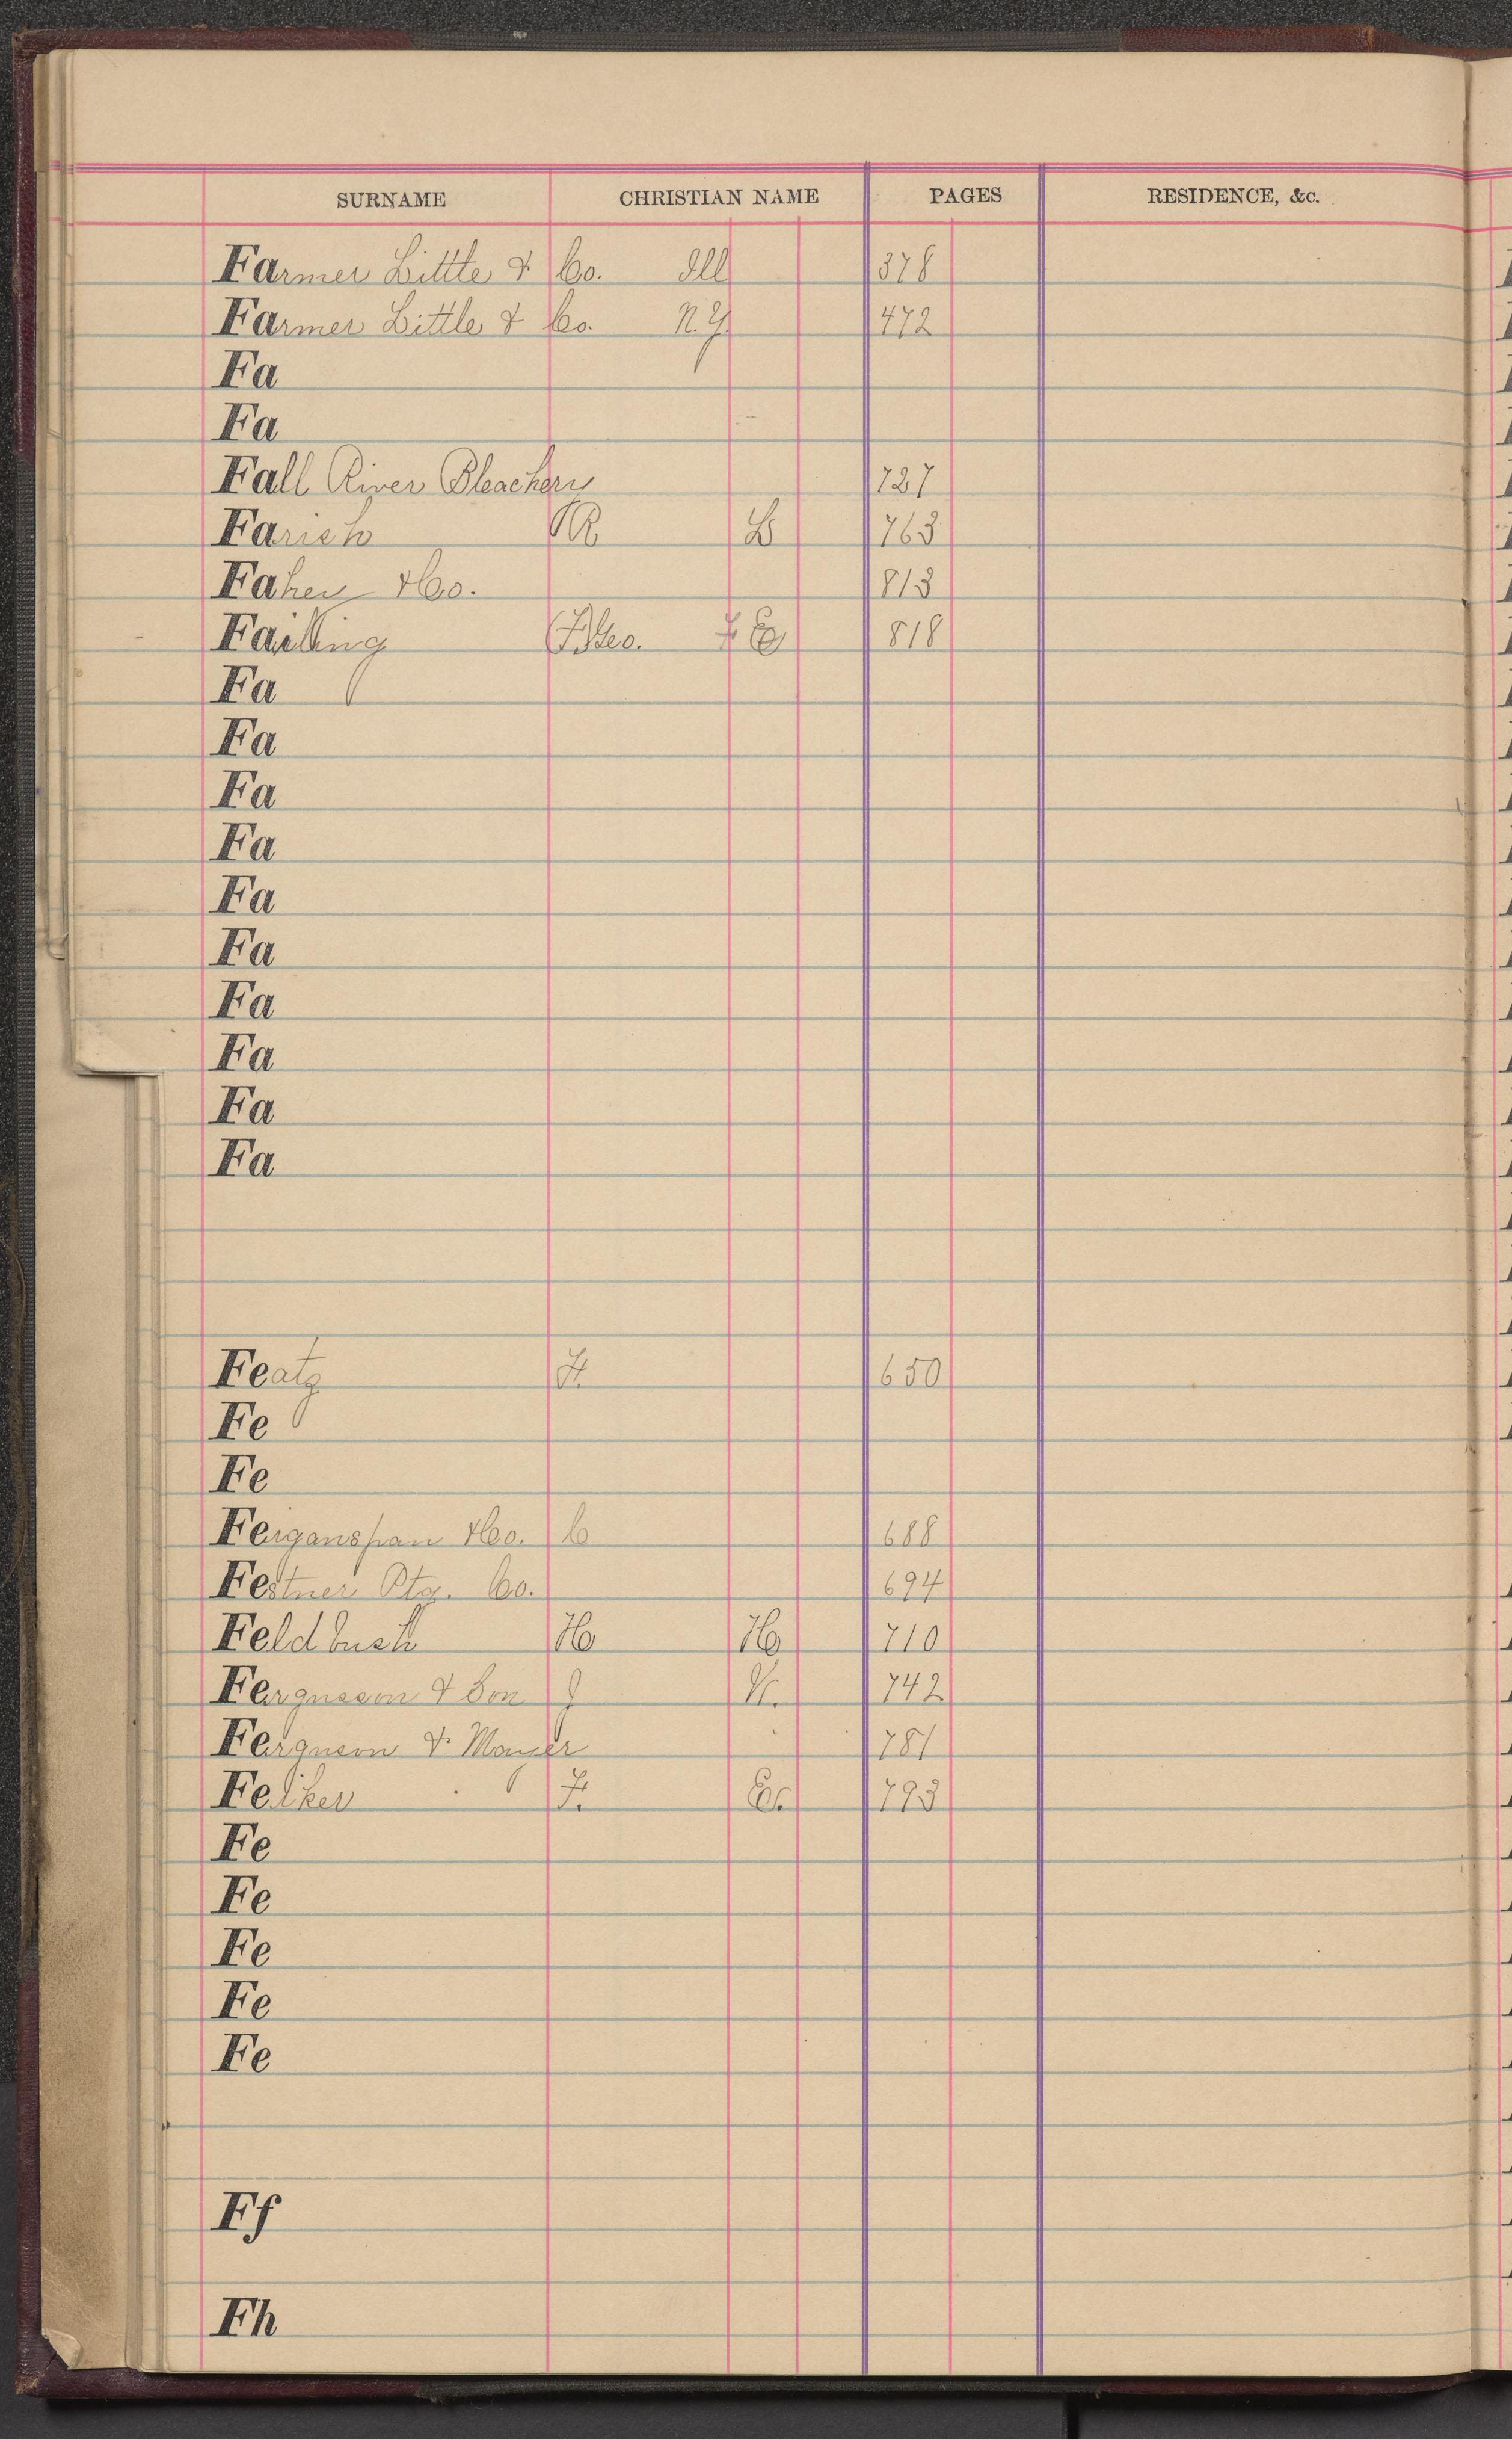 SURNAME CHRISTIAN NAME PAGES RESIDENCE, &c.
Farmer Little & Co. Ill 378
Farmer Little & Co. N.Y. 472
Fa
Fa
Fall River Bleachery 727
Farish R B 763
Fahey & Co. 813
Failing Theo. F. C 818
Fa
Fa
Fa
Fa
Fa
Fa
Fa
Fa
Fa
Fa
Featz F. 650
Fe
Fe
Feiganspan & Co. C 688
Festner Ptg. Co. 694
Feldbush H H 710
Fergusson & Son J W. 742
Ferguson & Mayer 781
Felker F. C. 793
Fe
Fe
Fe
Fe
Fe
Ff
Fh